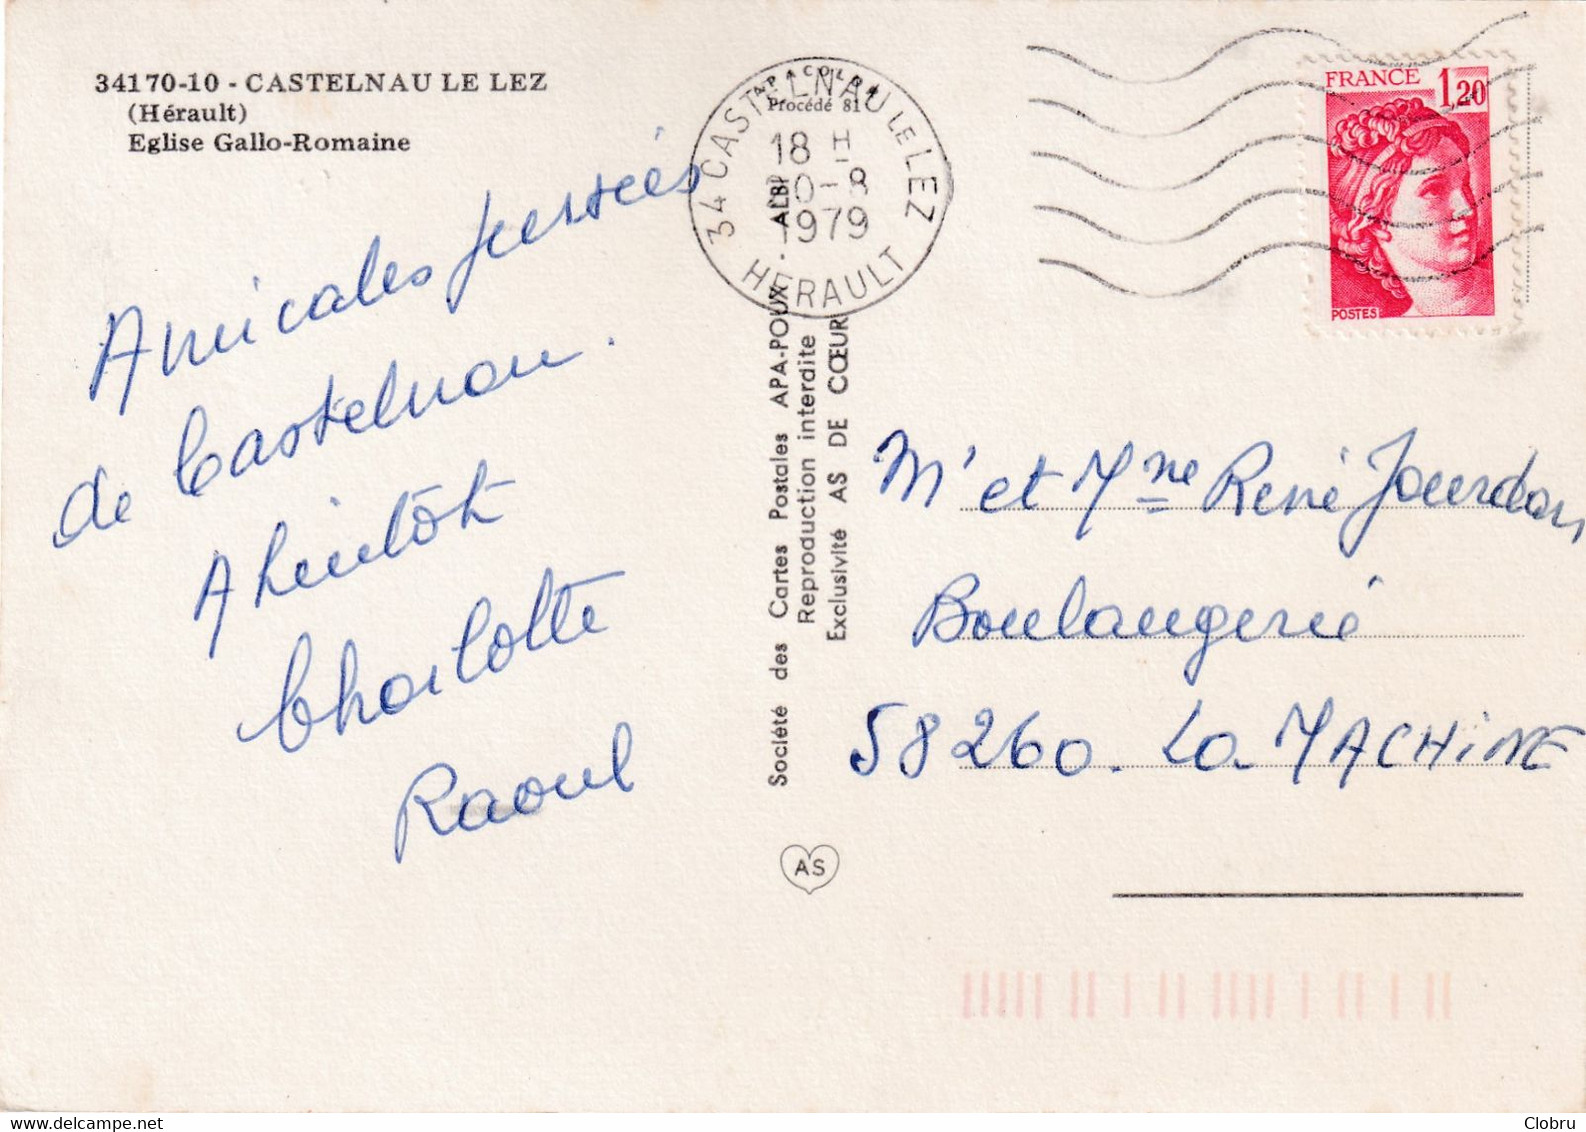 34170-10 - CASTELNAU LE LEZ
(Hérault)
Eglise Gallo-Romaine
Amicales pensées
de Castelnau.
A bientôt
Charlotte
Raoul
APA COLOR
Procédé 81
34 CASTELNAU LE LEZ
18 H
0-8
1979
HERAULT
Société des Cartes Postales APA-POUX - ALBI
Reproduction interdite
Exclusivité AS DE CŒUR
AS
FRANCE 1,20
POSTES
Mr et Mme René Jourdan
Boulangerie
58260. La MACHiNE
Clobru